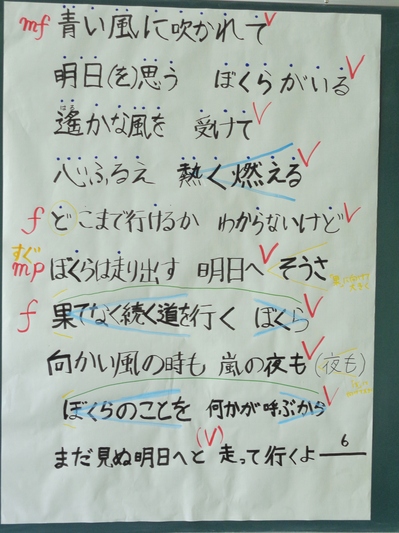 mf 青い風に吹かれて
明日(を)思う ぼくらがいる
はる
遙かな風を 受けて
心ふるえ 熱く燃える
f どこまで行けるか わからないけど
すぐ
mp ぼくらは走り出す 明日へ そうさ
f 果てなく続く道を行く ぼくら
向かい風の時も 嵐の夜も (夜も)
ぼくらのことを 何かが呼ぶから
(V)
まだ見ぬ明日へと 走って行くよ 6